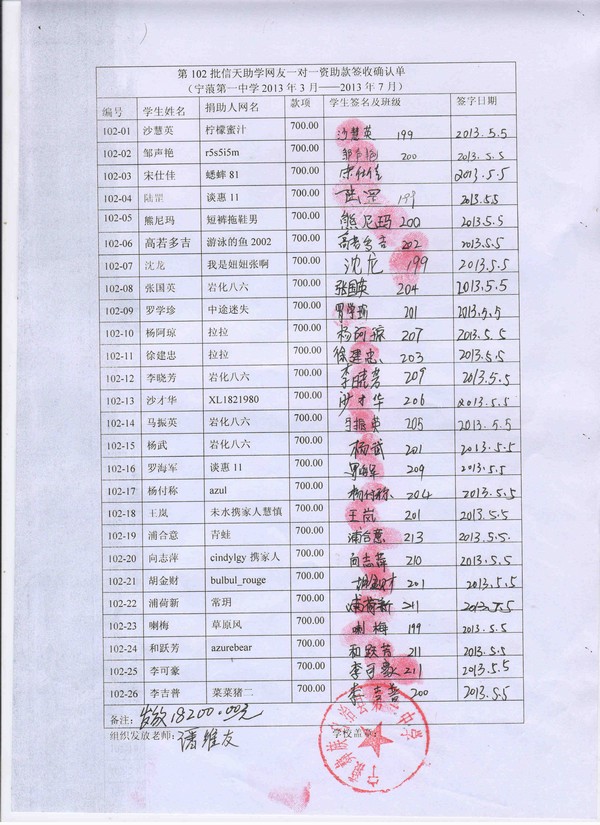 第 102 批信天助学网友一对一资助款签收确认单
（宁蒗第一中学 2013 年 3 月——2013 年 7 月）
编号 学生姓名 捐助人网名 款项 学生签名及班级 签字日期
102-01 沙慧英 柠檬蜜汁 700.00 沙慧英 199 2013.5.5
102-02 邹声艳 r5s5i5m 700.00 200 2013.5.5
102-03 宋仕佳 蟋蟀 81 700.00 宋仕佳 2013.5.5
102-04 陆罡 谈惠 11 700.00 陆罡 199 2013.5.5
102-05 熊尼玛 短裤拖鞋男 700.00 熊尼玛 200 2013.5.5
102-06 高若多吉 游泳的鱼 2002 700.00 高若多吉 202 2013.5.5
102-07 沈龙 我是妞妞张啊 700.00 沈龙 199 2013.5.5
102-08 张国英 岩化八六 700.00 张国英 204 2013.5.5
102-09 罗学珍 中途迷失 700.00 罗学珍 201 2013.5.5
102-10 杨阿琼 拉拉 700.00 杨阿琼 207 2013.5.5
102-11 徐建忠 拉拉 700.00 徐建忠 203 2013.5.5
102-12 李晓芳 岩化八六 700.00 李晓芳 209 2013.5.5
102-13 沙才华 XL1821980 700.00 沙才华 206 2013.5.5
102-14 马振英 岩化八六 700.00 马振英 205 2013.5.5
102-15 杨武 岩化八六 700.00 杨武 201 2013.5.5
102-16 罗海军 谈惠 11 700.00 罗海军 209 2013.5.5
102-17 杨付称 azul 700.00 杨付称 204 2013.5.5
102-18 王岚 未水携家人慧慎 700.00 王岚 201 2013.5.5
102-19 浦合意 青蛙 700.00 浦合意 213 2013.5.5
102-20 向志萍 cindylgy 携家人 700.00 向志萍 210 2013.5.5
102-21 胡金财 bulbul_rouge 700.00 胡金财 201 2013.5.5
102-22 浦荷新 常玥 700.00 浦荷新 211 2013.5.5
102-23 喇梅 草原风 700.00 喇梅 199 2013.5.5
102-24 和跃芳 azurebear 700.00 和跃芳 211 2013.5.5
102-25 李可豪 700.00 李可豪 211 2013.5.5
102-26 李吉普 菜菜猪二 700.00 李吉普 200 2013.5.5
备注：发放18200.00元
组织发放老师：潘维友 学校盖章：